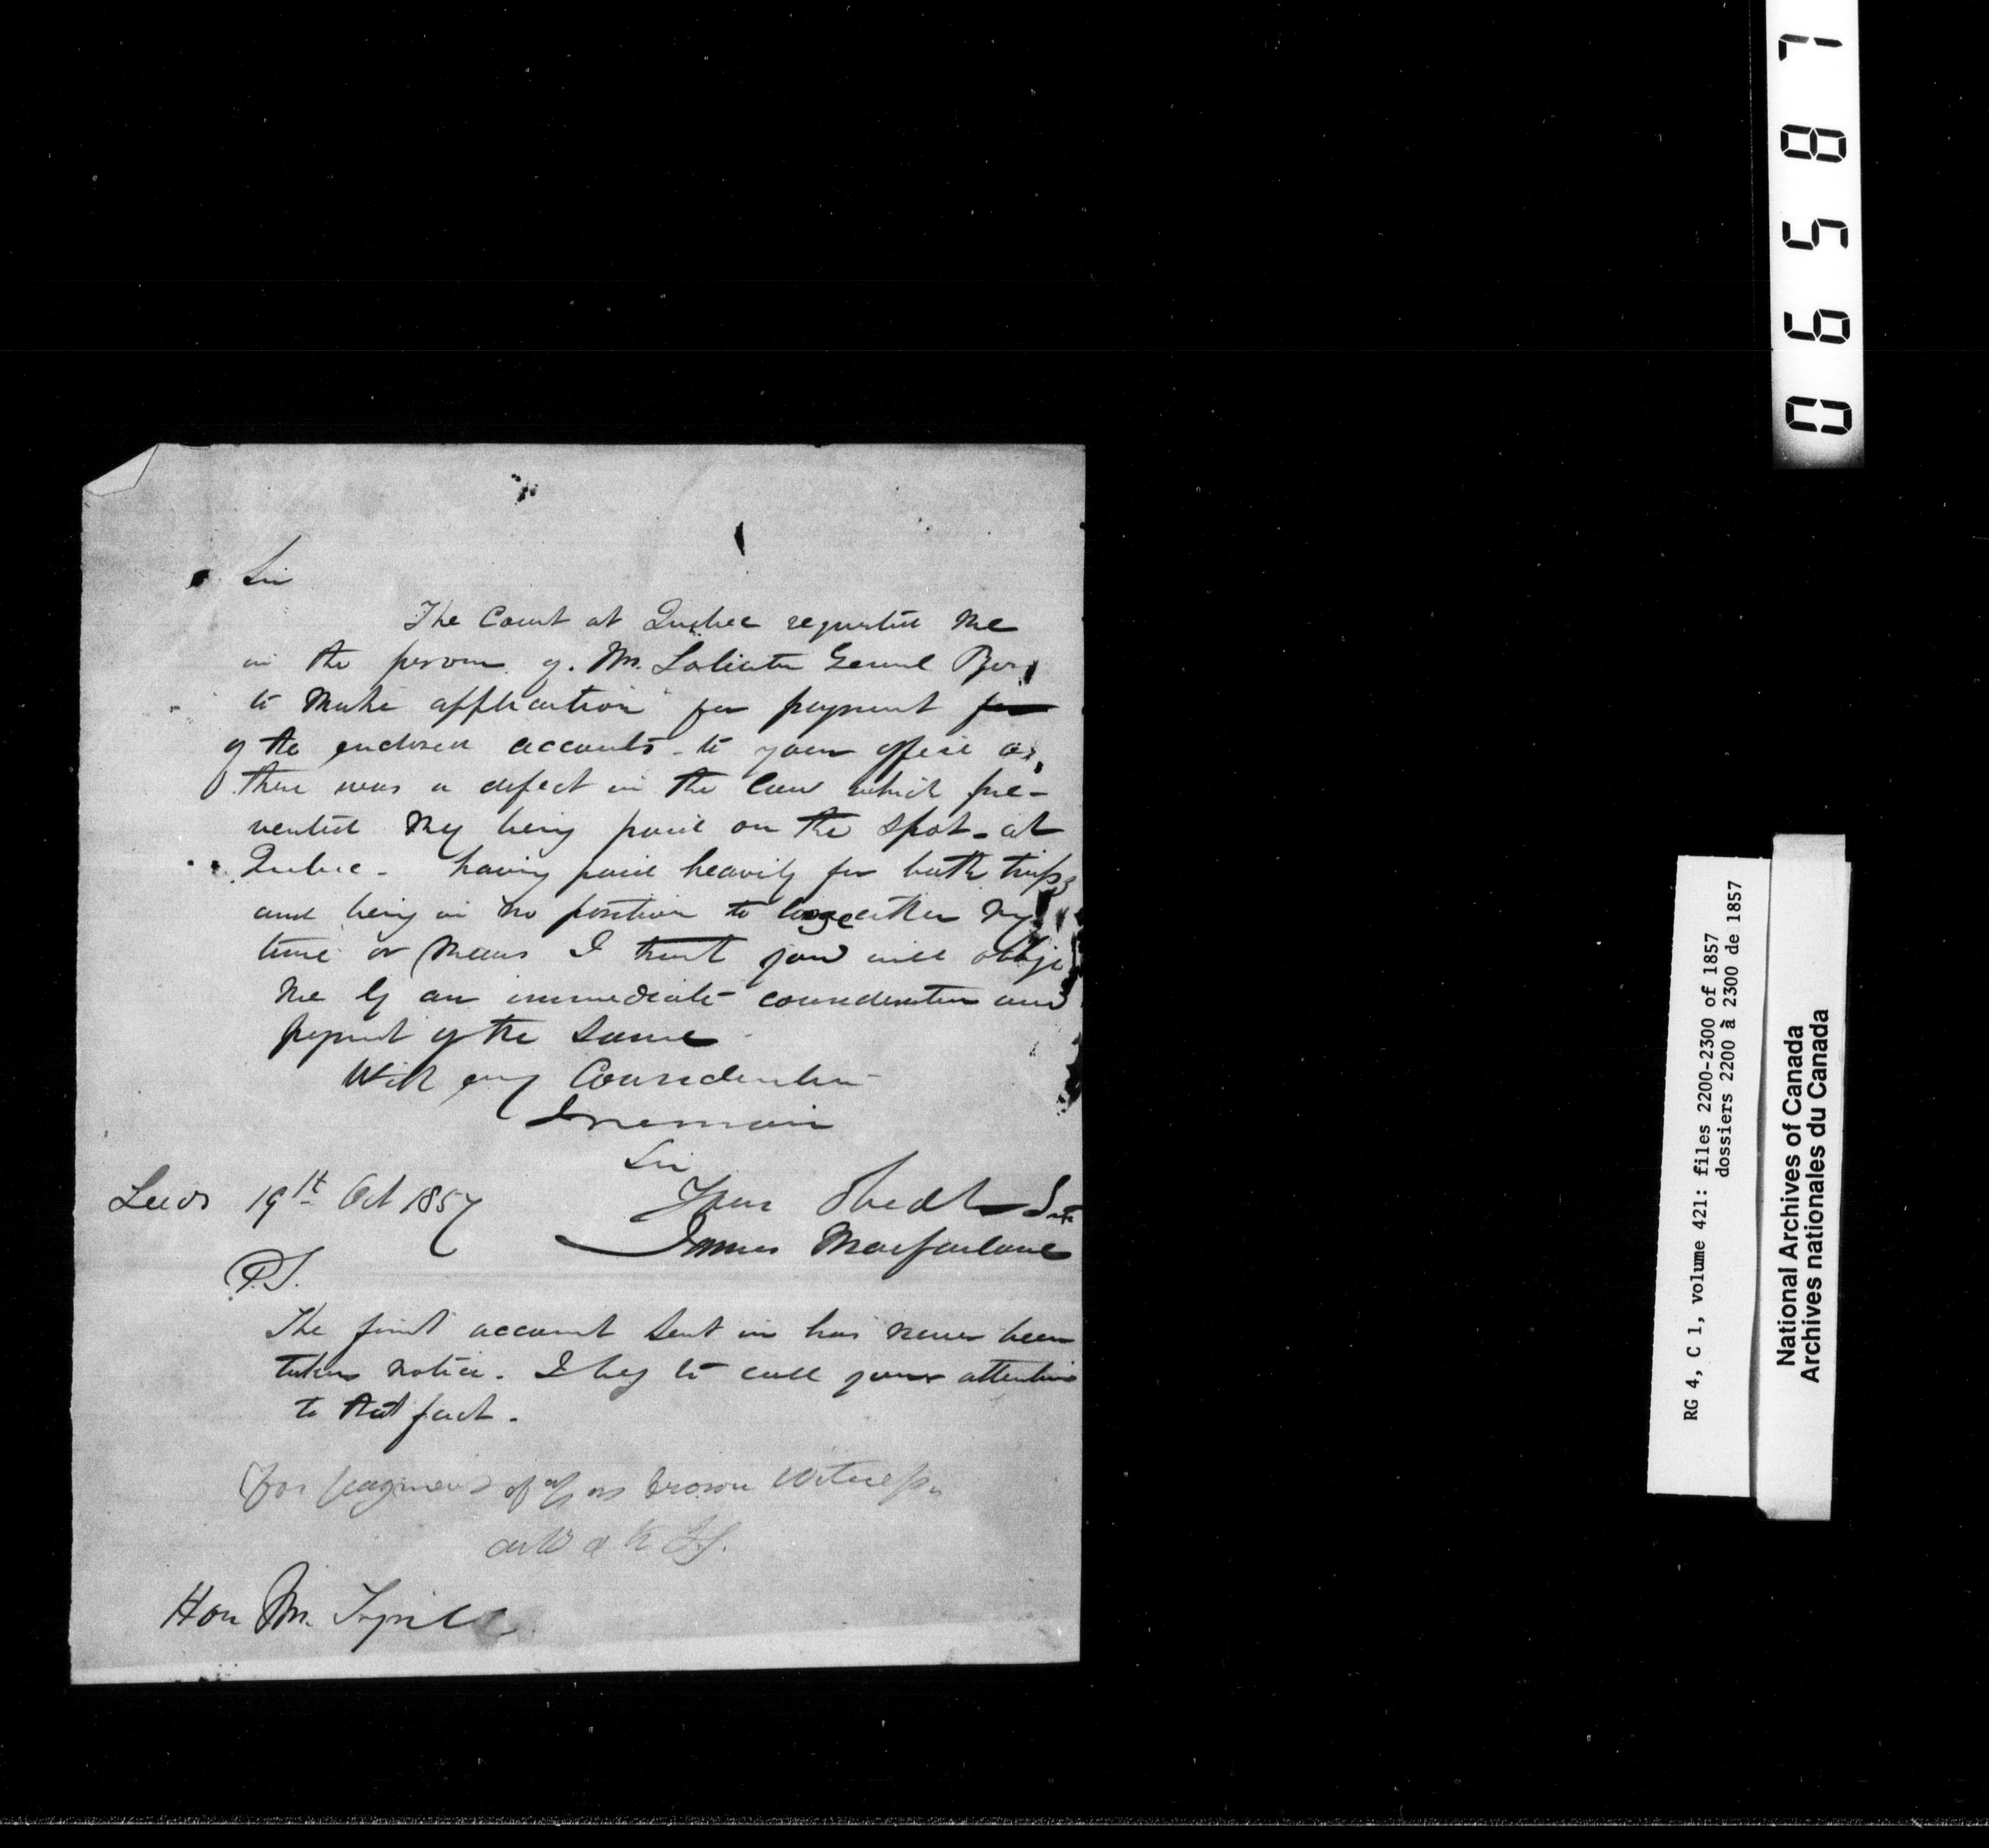 Sir
The Court at Quebec requested me
in the person of Mr. Soliciter General
to make application for payment for
of the enclosed accounts - to your office as
there was a defect in the law which pre-
vented my being paid on the spot - at
Quebec - having paid heavily for both trips
and being in no position to loose either my
time or means I trust you will oblige
me by an immediate consideration and
payment of the same
With every Consideration
I remain
Sir
Leeds 19th Oct 1857 Your Obedt Svt
James Macfarlane
P.S.
The first account sent in has never been
taken notice. I beg to call your attention
to that fact.
for payment of as Crown Witness
Hon Mr.
06587
RG 4, C 1, volume 421: files 2200-2300 of 1857
dossiers 2200 à 2300 de 1857
National Archives of Canada
Archives nationales du Canada